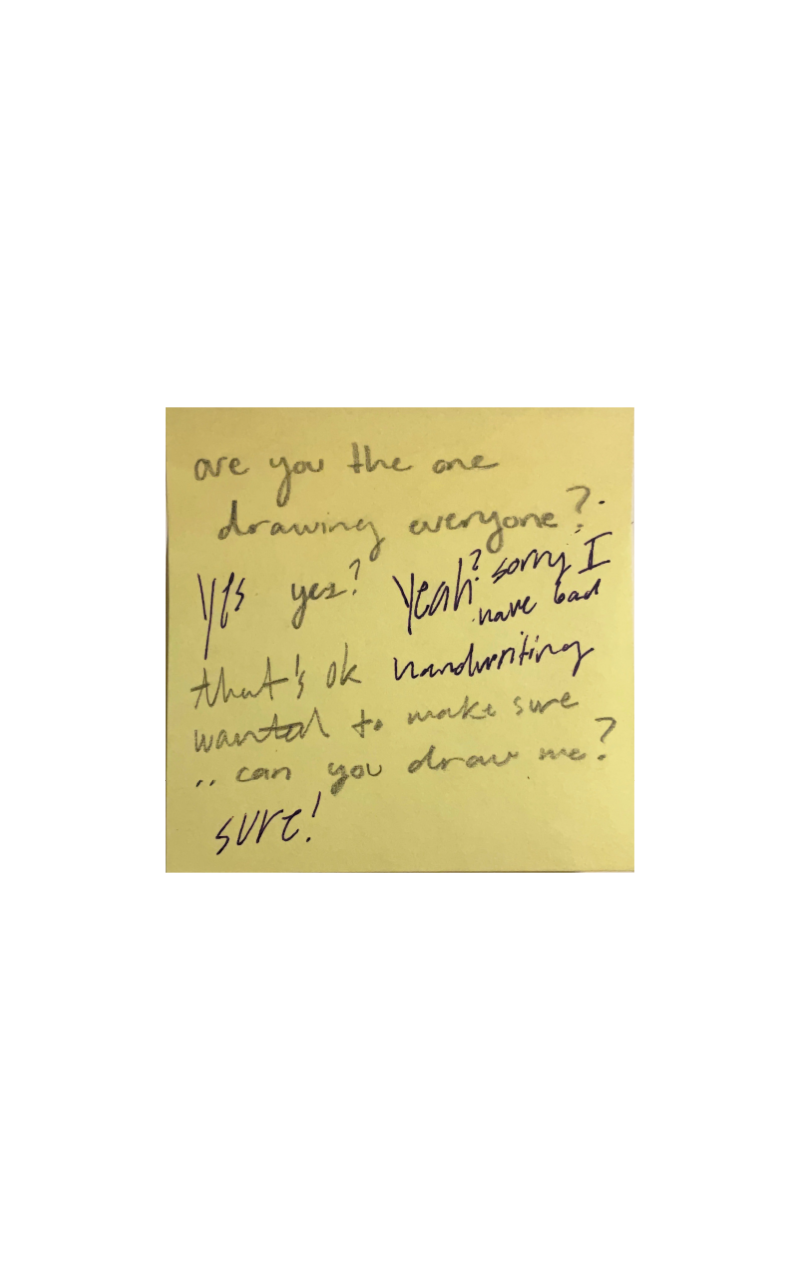 are you the one
drawing everyone?
yes yes? Yeah? sorry I
have bad
handwriting
that's ok
wanted to make sure
.. can you draw me?
sure!